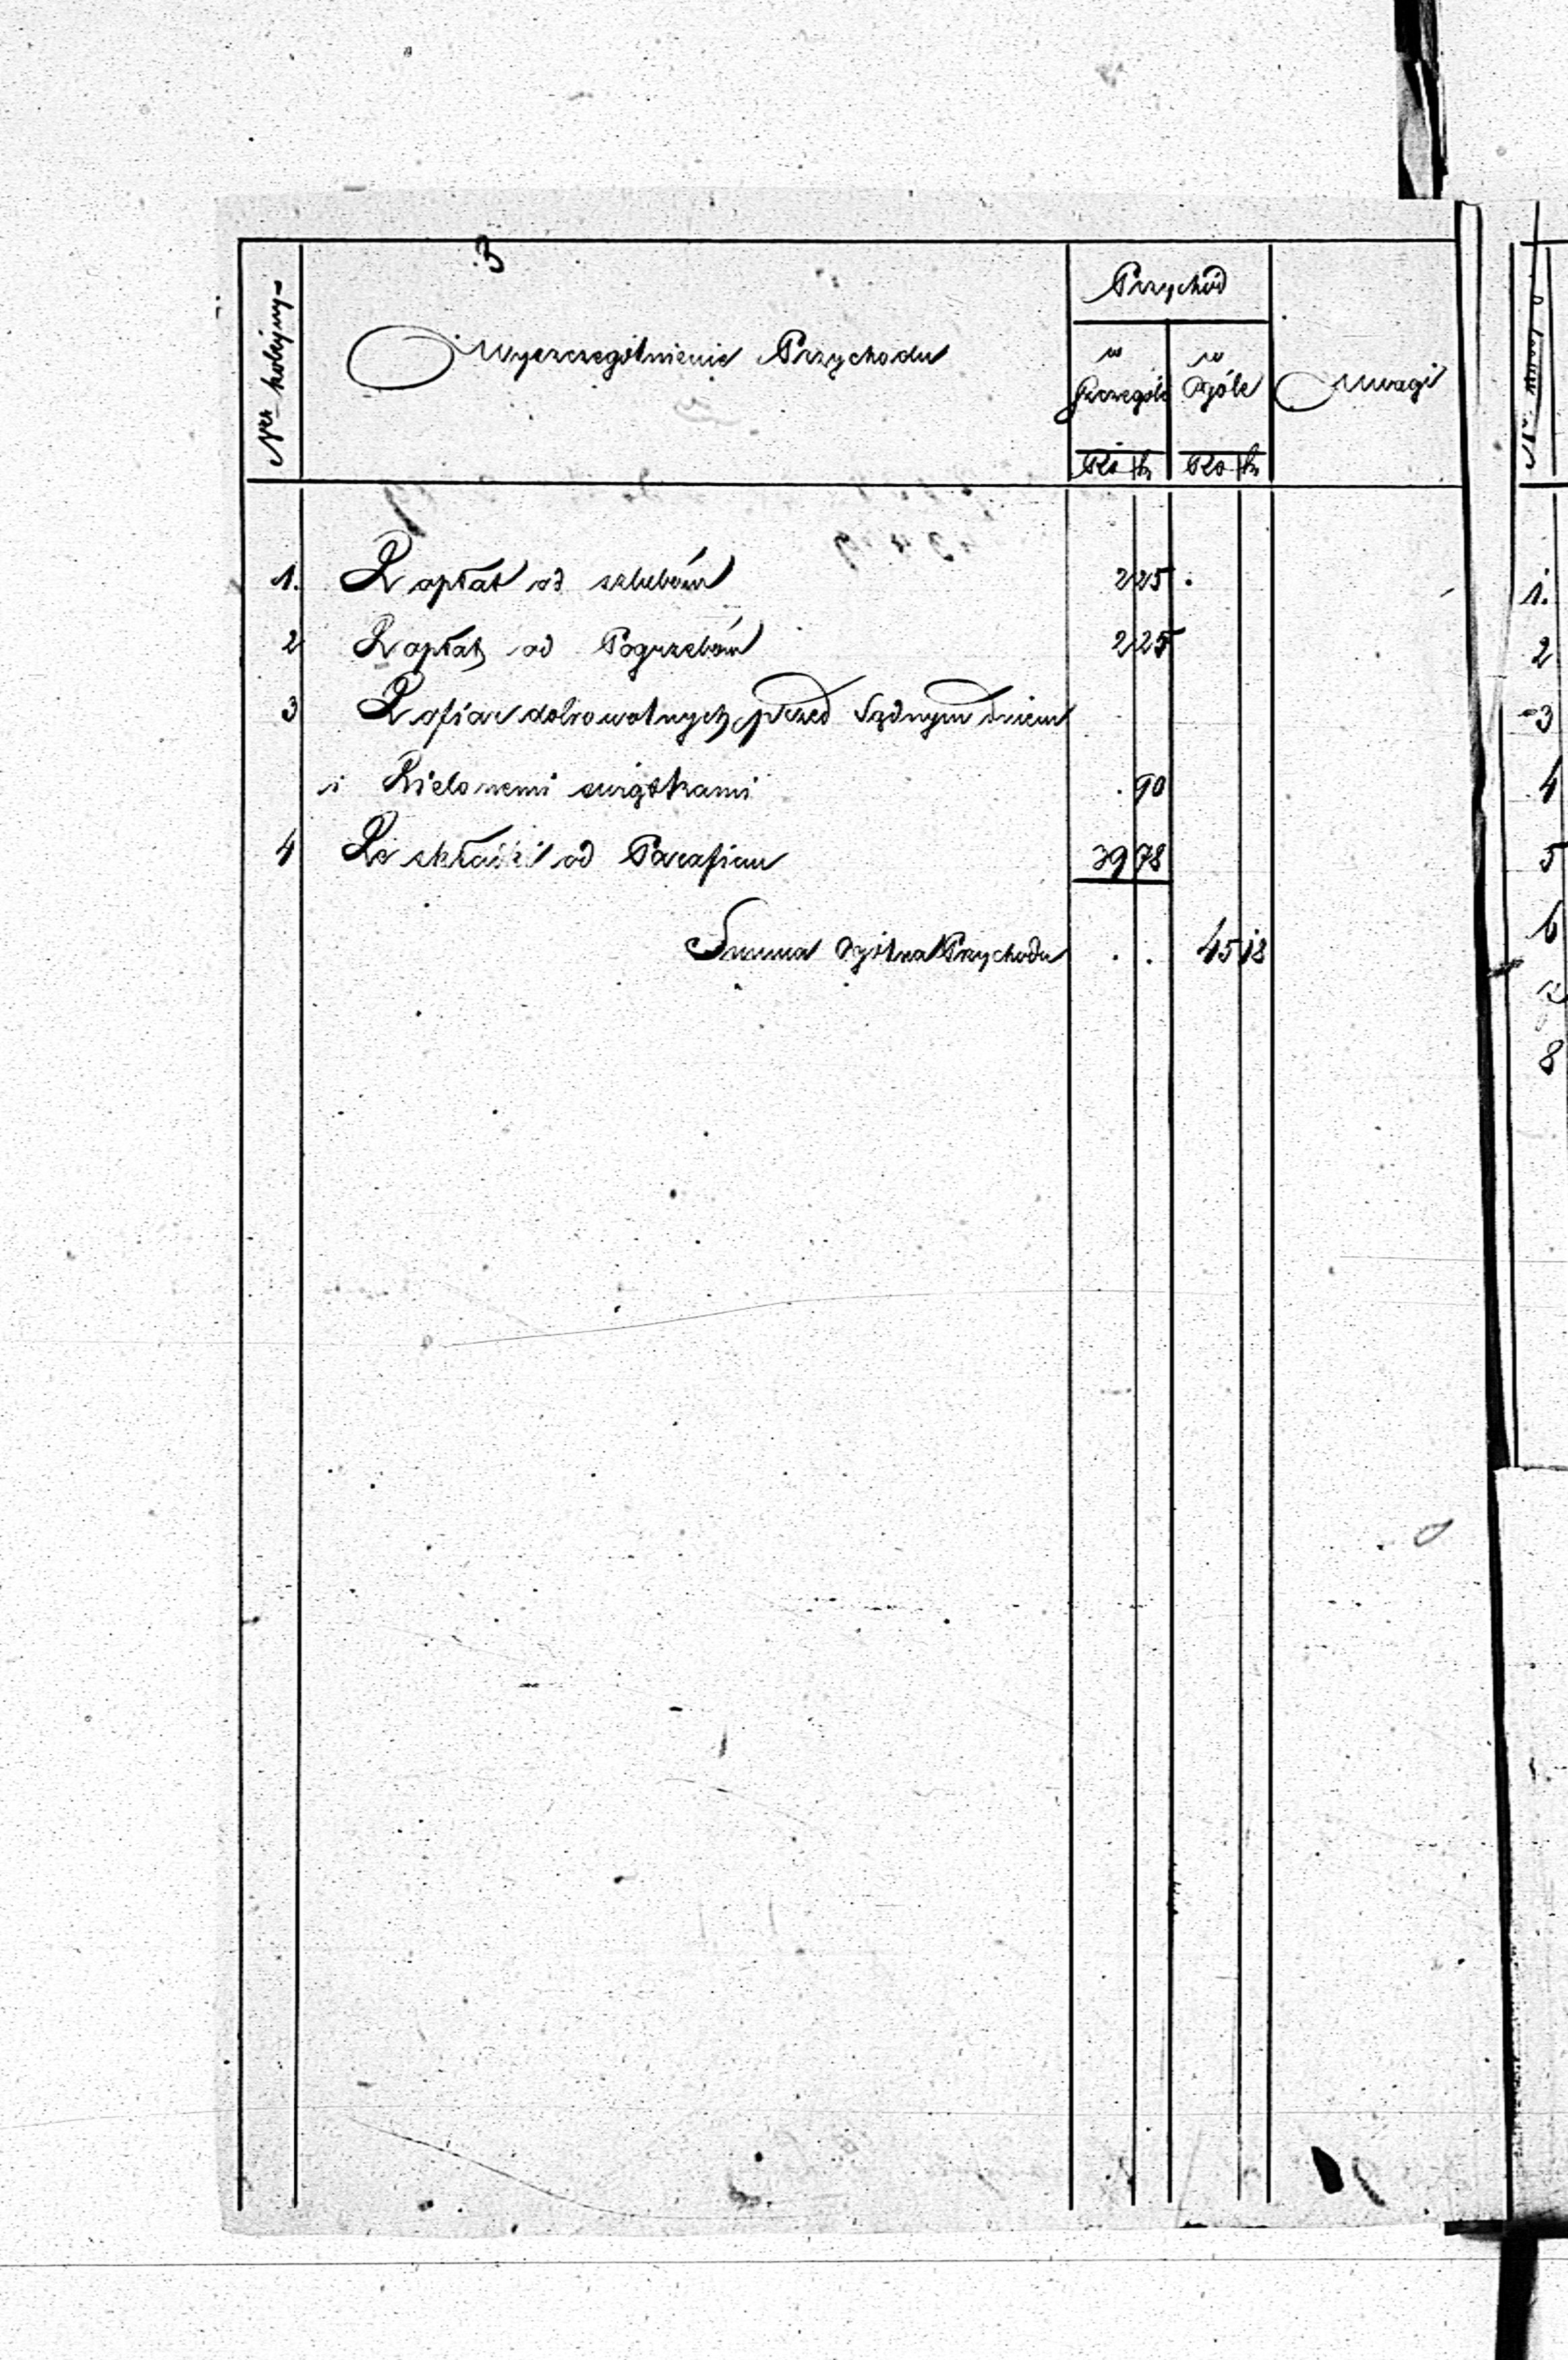 3
Ner kolejny
Wyszczególnienie Przychodu
Przychód
w Szczególe
w Ogóle
Uwagi
Rs k Rs k
1. Z opłat od szlubów 2 25
2 Z opłat od Pogrzebów 2 25
3 Z ofiar dobrowolnych przed Sądnym dniem
i Zielonemi swiątkami . 90
4 Ze składki od Parafian 39 78
Summa Ogólna Przychodu . . 45 18
1.
2
3
4
5
6
8